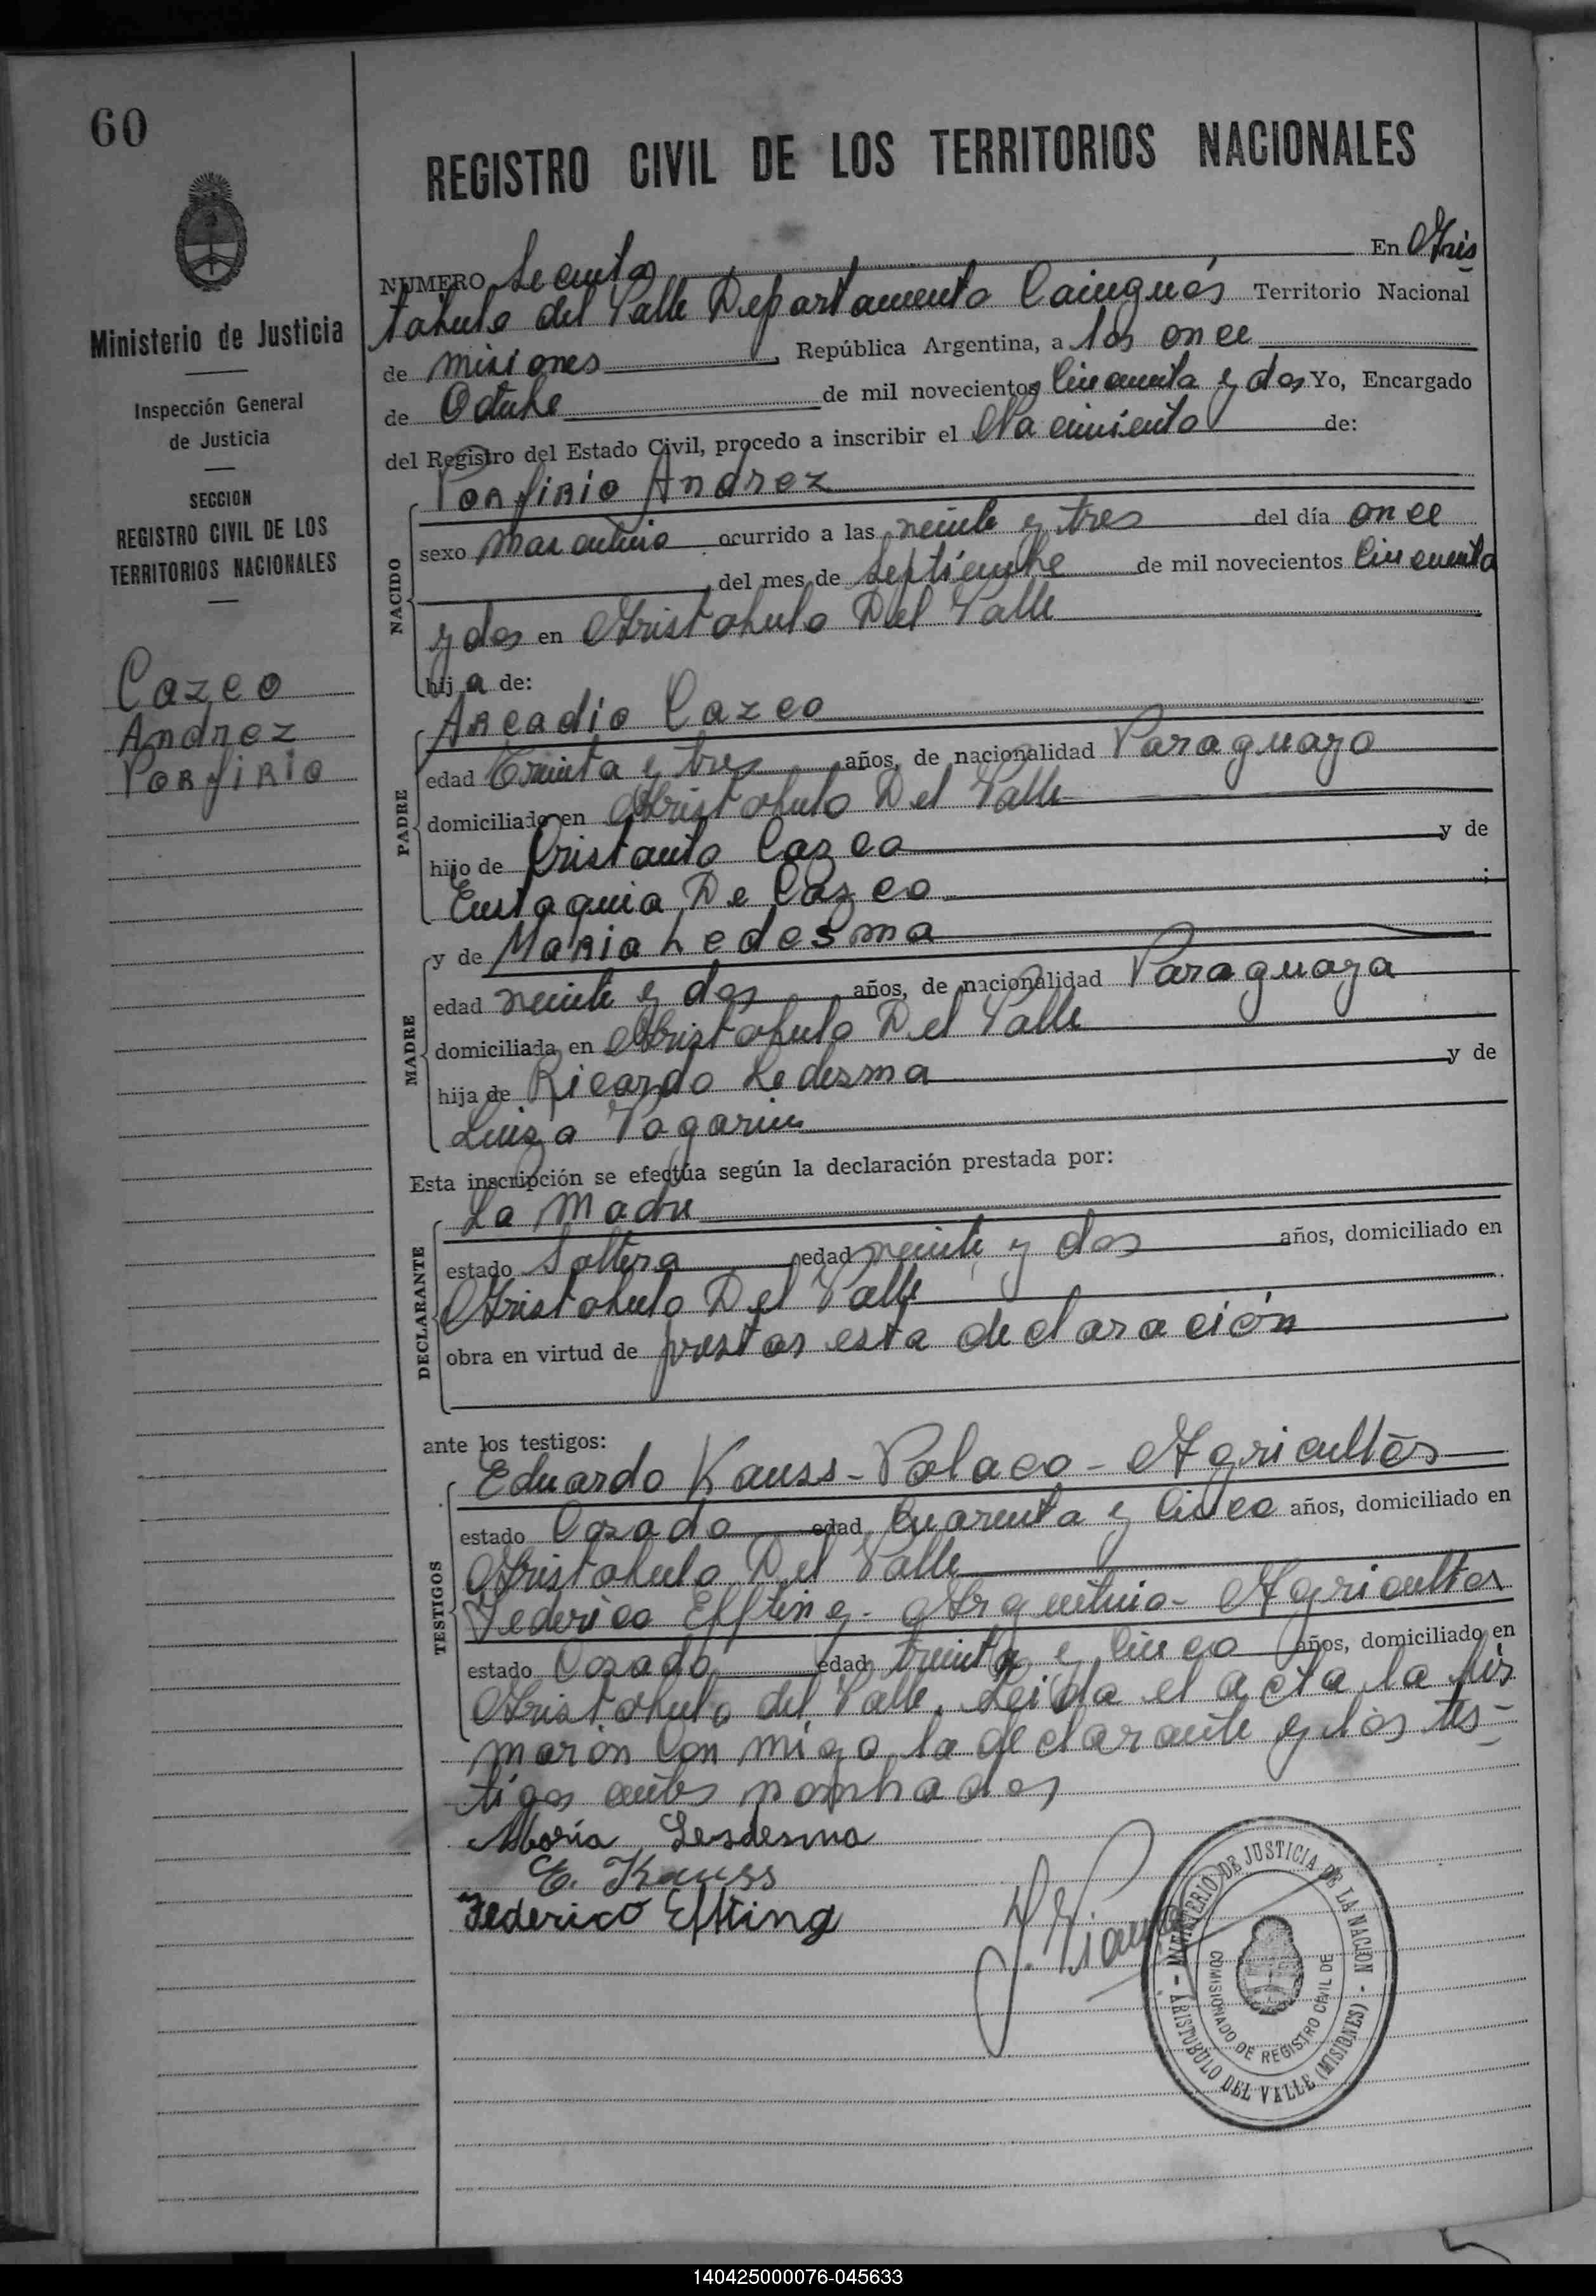 60
REGISTRO CIVIL DE LOS TERRITORIOS NACIONALES
Ministerio de Justicia
Inspección General
de Justicia
SECCION
REGISTRO CIVIL DE LOS
TERRITORIOS NACIONALES
Cazco
Andrez
Porfirio
NUMERO Secenta En Aris
tobulo del Valle Departamento Cainguás Territorio Nacional
de misiones, República Argentina, a los once
de Octubre de mil novecientos Cincuenta y dos Yo, Encargado
del Registro del Estado Civil, procedo a inscribir el Nacimiento de:
NACIDO
Porfirio Andrez
sexo masculino ocurrido a las veinte y tres del día once
del mes de Septiembre de mil novecientos Cincuenta
y dos en Aristobulo Del Valle
hij a de:
PADRE
Arcadio Cazco
edad Treinta y tres años, de nacionalidad Paraguayo
domiciliado en Aristobulo Del Valle
hijo de Cristanto Cazco y de
Eustaquia De Cazco ;
MADRE
y de Maria Ledesma
edad veinte y dos años, de nacionalidad Paraguaya
domiciliada en Aristobulo Del Valle
hija de Ricardo Ledesma y de
Luiza
Esta inscripción se efectúa según la declaración prestada por:
DECLARANTE
La Madre
estado Soltera edad veinte y dos años, domiciliado en
Aristobulo Del Valle
obra en virtud de prestar esta declaración
ante los testigos:
TESTIGOS
Eduardo Kauss - Polaco - Agricultor
estado Cazado edad Cuarenta y Cinco años, domiciliado en
Aristobulo Del Valle
Federico Effting - Argentino - Agricultor
estado Cazado edad treinta y Cinco años, domiciliado en
Aristobulo del Valle. Leida el acta la fir
maron Con migo la declarante y los tes-
tigos antes nombrados
Maria Lesdesma
E. Kauss
Federico Effting
MINISTERIO DE JUSTICIA DE LA NACION - ARISTOBULO DEL VALLE (MISIONES) -
COMISIONADO DE REGISTRO CIVIL DE
140425000076-045633